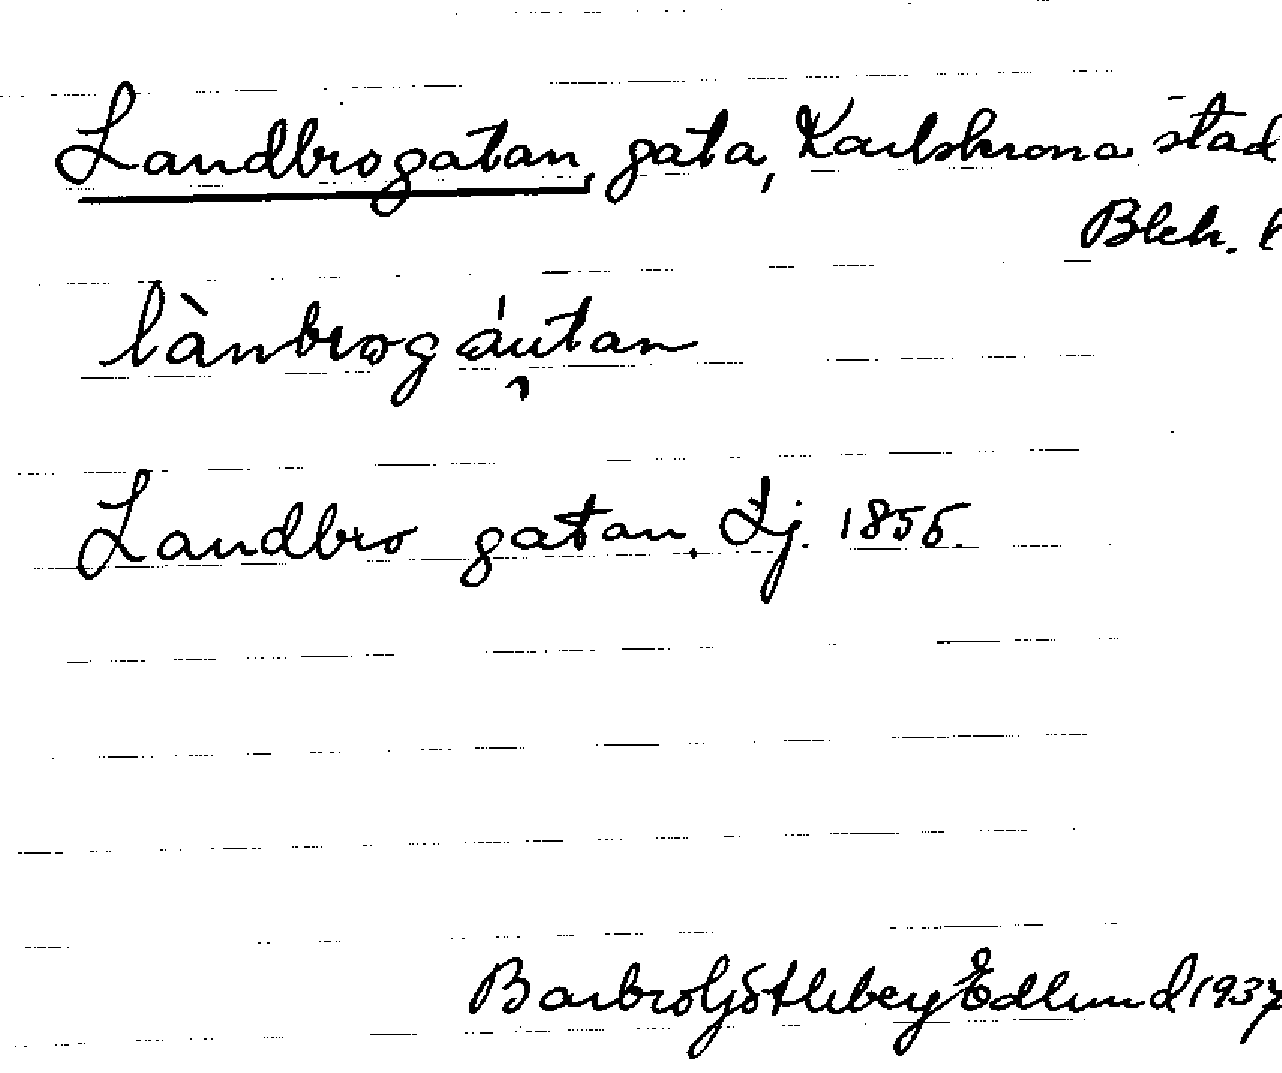 Landbrogatan, gata, Karlskrona stad
Blek. l
lànbrogáutan
Landbro gatan. Lj. 1855.
Barbro Götlibey Edlund 1937